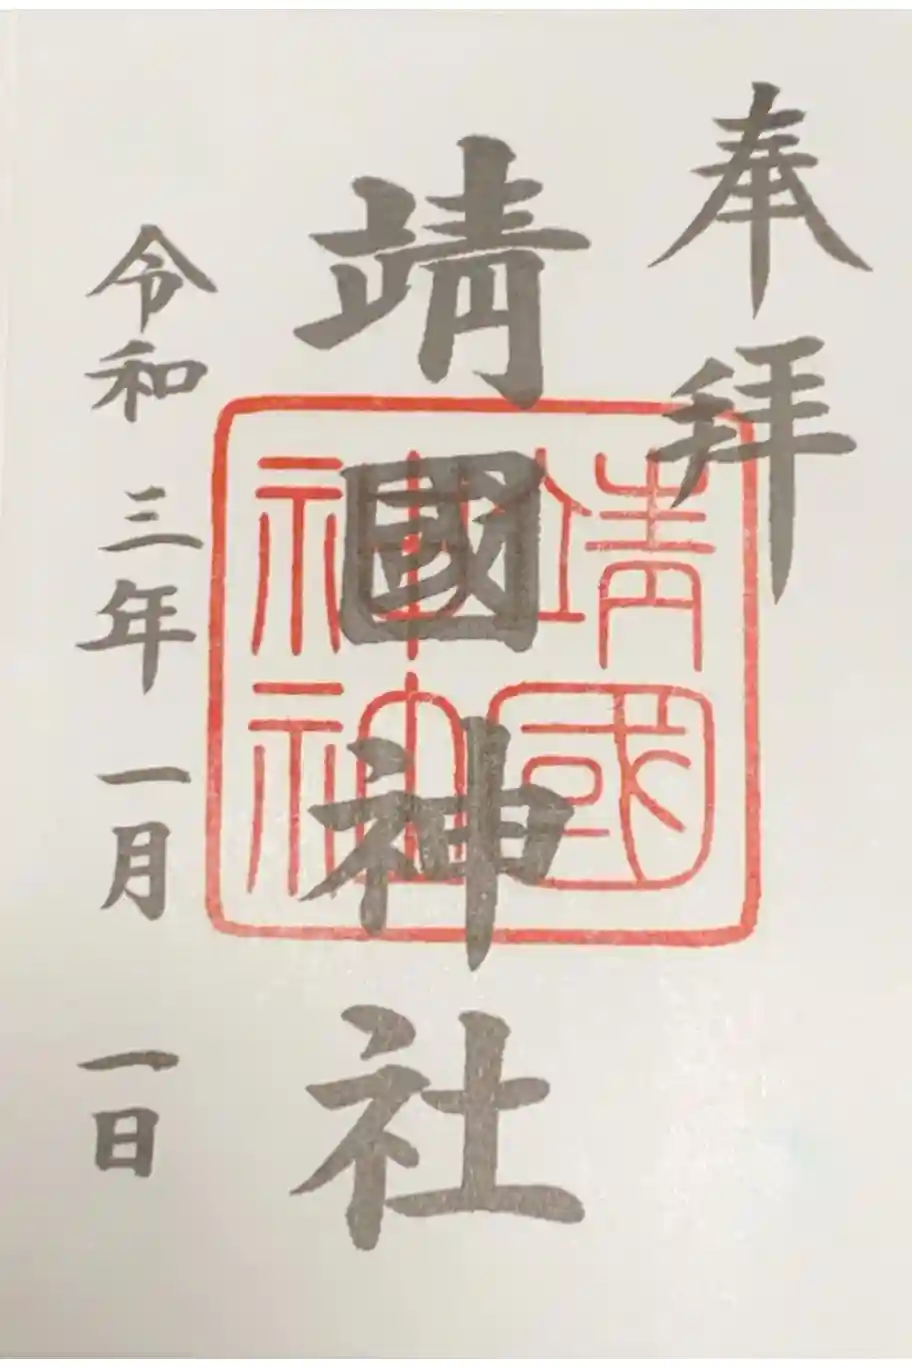 奉拝
靖國神社
令和三年一月一日
靖國
神社